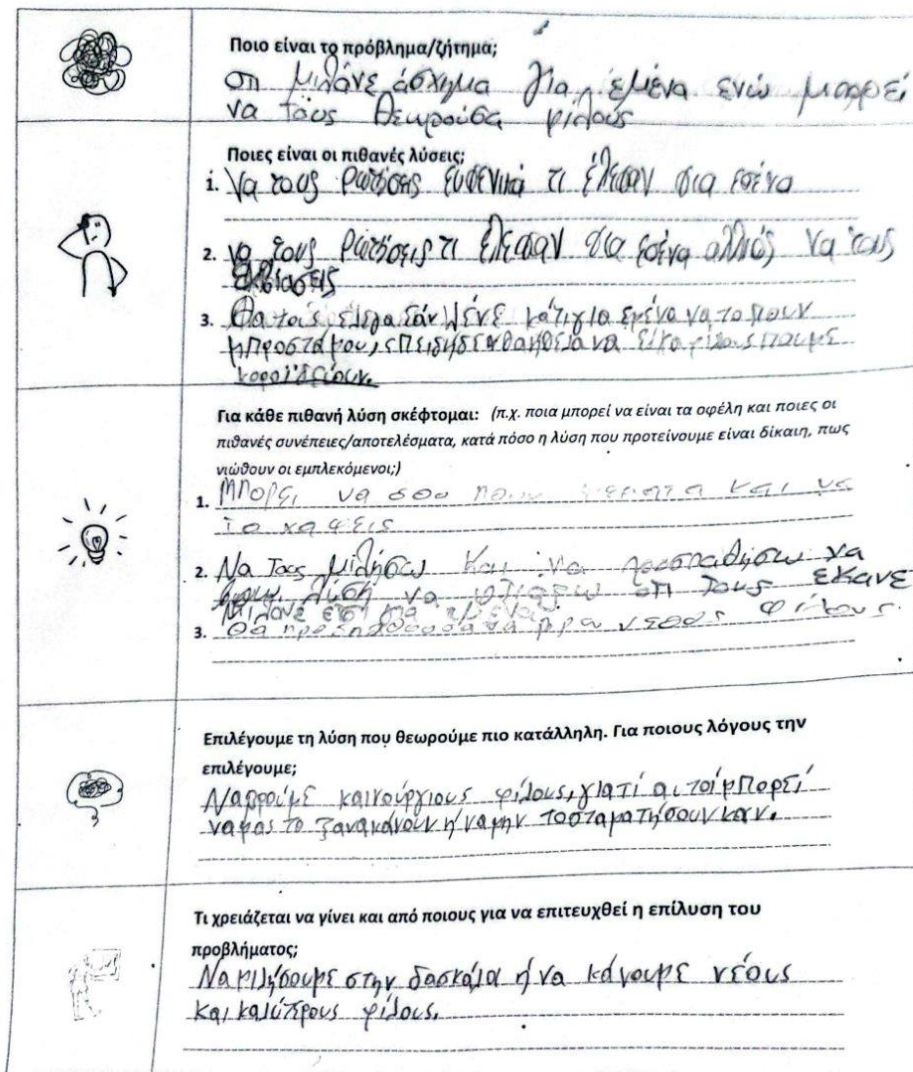 Ποιο είναι το πρόβλημα/ζήτημα;
οτι μιλάνε άσχημα για εμένα ενώ μπορεί
να τους θεωρούσα φίλους
Ποιες είναι οι πιθανές λύσεις;
1. Να τους ρωτήσεις ευγενικά τι έλεγαν για εσένα
2. να τους ρωτήσεις τι έλεγαν για εσένα αλλιός να τους
3. Θα τους έλεγα εάν λένε κάτι για εμένα να το πουν
μπροστά μου, επειδή δεν θα ήθελα να είχα φίλους που με
κοροϊδεύουν.
Για κάθε πιθανή λύση σκέφτομαι: (π.χ. ποια μπορεί να είναι τα οφέλη και ποιες οι
πιθανές συνέπειες/αποτελέσματα, κατά πόσο η λύση που προτείνουμε είναι δίκαιη, πως
νιώθουν οι εμπλεκόμενοι;)
1. Μπορει να σου πουν ψεματα και να
το χαψεις
2. Να τους μιλήσω και να προσπαθήσω να
βρω λύση να φτιάξω οτι τους έκανε
να μιλάνε έτσι για εμένα.
3. Θα προσπαθουσα να βρω νεους φίλους.
Επιλέγουμε τη λύση που θεωρούμε πιο κατάλληλη. Για ποιους λόγους την
επιλέγουμε;
Να βρούμε καινούργιους φίλους, γιατί αυτοί μπορεί
να μας το ξανακάνουν ή να μην το σταματήσουν καν.
Τι χρειάζεται να γίνει και από ποιους για να επιτευχθεί η επίλυση του
προβλήματος;
Να μιλήσουμε στην δασκάλα ή να κάνουμε νέους
και καλύτερους φίλους.